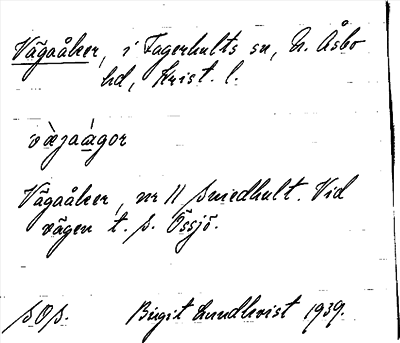 Vägaåker, i Fagerhults sn, N. Åsbo
hd, Krist. l.
væ̀jaágor
Vägaåker, nr 11 Smedhult. Vid
vägen t. S. Össjö.
SOS. Birgit Lundkvist 1939.